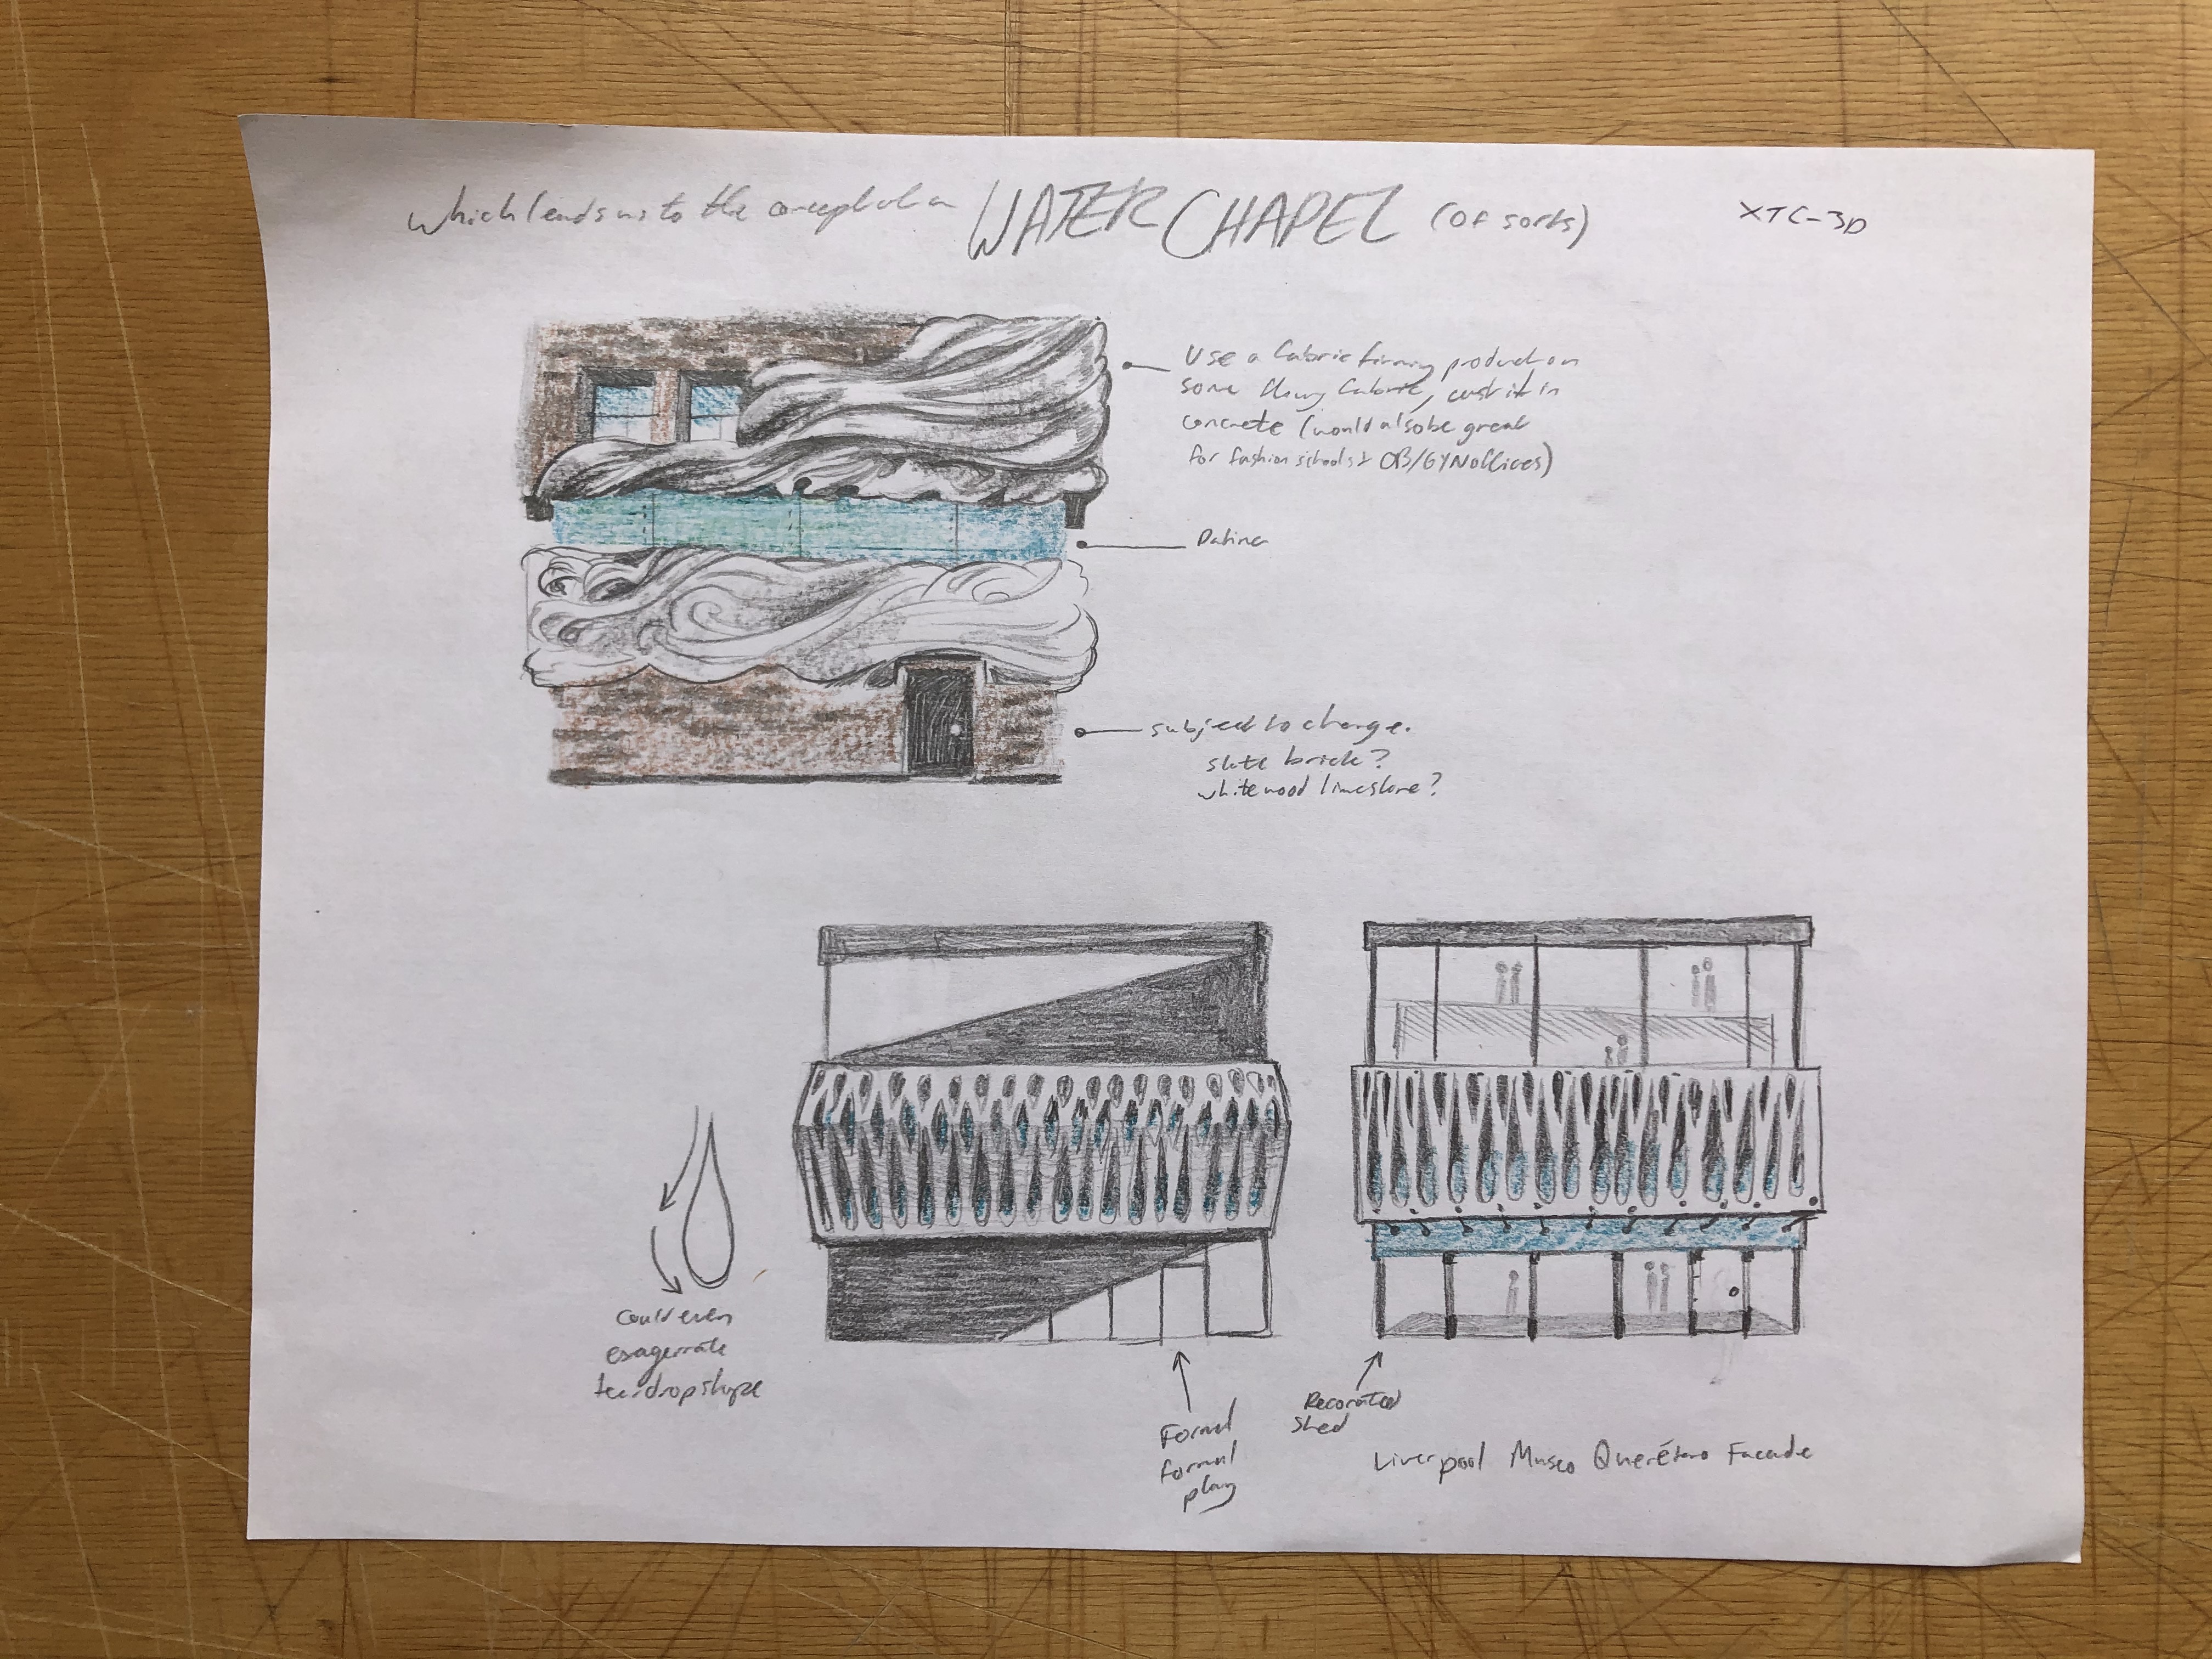 Which leads us to the concept of a WATER CHAPEL (of sorts)
XTC-3D
Use a fabric firming product on
some flowy fabric, cast it in
concrete (would also be great
for fashion schools & OB/GYN offices)
Patina
subject to change.
slate brick?
whitewood limestone?
Could even
exagerrate
teardrop shape
Formal
formal
play
Decorated
shed
Liverpool Museo Querétaro Facade